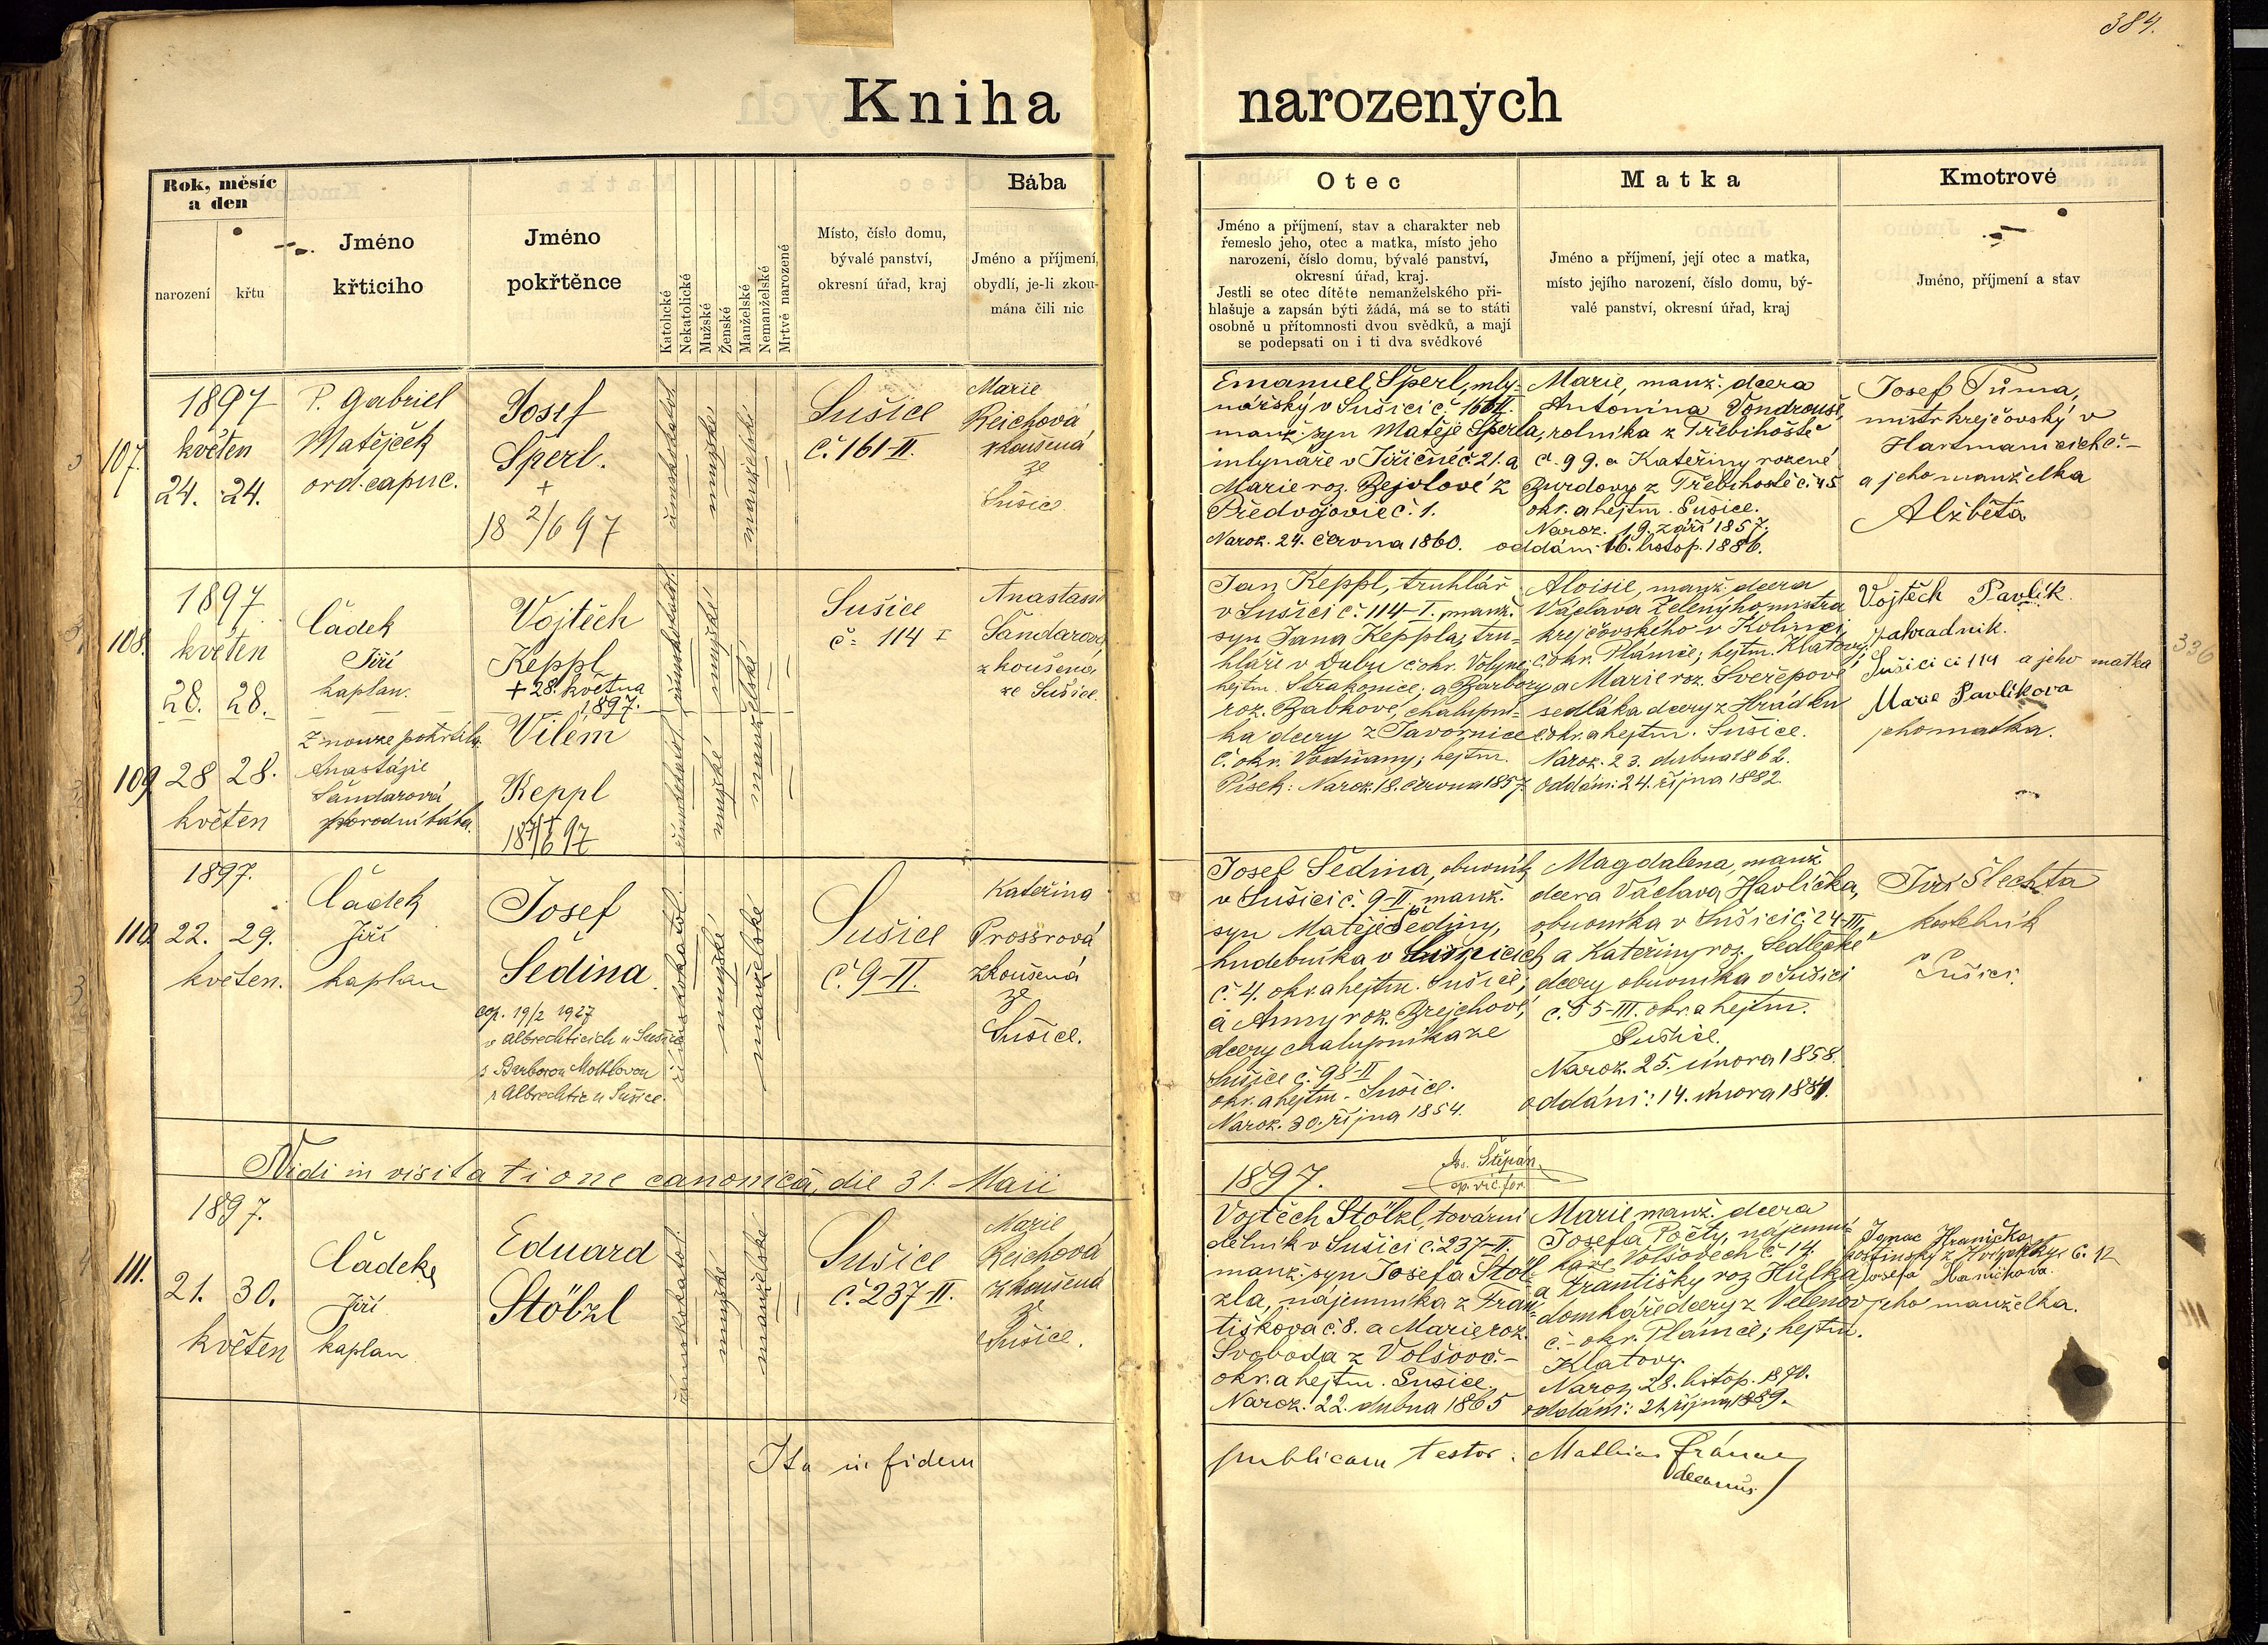 384.
Kniha narozených
Rok, měsíc
a den
narození
křtu
Jméno
křticího
Jméno
pokřtěnce
Katolické
Nekatolické
Mužské
Ženské
Manželské
Nemanželské
Mrtvě narozené
Místo, číslo domu,
bývalé panství,
okresní úřad, kraj
Bába
Jméno a příjmení,
obydlí, je-li zkou-
mána čili nic
Otec
Jméno a příjmení, stav a charakter neb
řemeslo jeho, otec a matka, místo jeho
narození, číslo domu, bývalé panství,
okresní úřad, kraj.
Jestli se otec dítěte nemanželského při-
hlašuje a zapsán býti žádá, má se to státi
osobně u přítomnosti dvou svědků, a mají
se podepsati on i ti dva svědkové
Matka
Jméno a příjmení, její otec a matka,
místo jejího narození, číslo domu, bý-
valé panství, okresní úřad, kraj
Kmotrové
Jméno, příjmení a stav
107.
1897
květen
24. 24.
P. Gabriel
Matějček
ord. capuc.
Josef
Šperl.
+
18 2/6 97
římskokatol.
mužské
manželské
Sušice
č. 161-II.
Marie
Reichová
zkoušená
ze
Sušice.
Emanuel Šperl, mly-
nářský v Sušici č. 161 II.
manž. syn Matěje Šperla,
mlynáře v Jiřičné č. 21. a
Marie roz. Bejvlové z
Předvojovic č. 1.
Naroz. 24. června 1860.
Marie, manž. dcera
Antonína Vondrouše,
rolníka z Třebihoště
č. 99. a Kateřiny rozené
Burdovy z Třebihoště č. 45
okr. a hejtm. Sušice.
Naroz. 19. září 1857.
oddáni: 16. listop. 1886.
Josef Tůma,
mistr krejčovský v
Hartmanicích č. –
a jeho manželka
Alžběta
108.
1897.
květen
28. 28.
Čádek
Jiří
kaplan.
Vojtěch
Keppl
+ 28. května
1897.
římskokatol.
mužské
manželské
Sušice
č. 114 I
Anastasie
Šandarová
zkoušená
ze Sušice.
Jan Keppl, truhlář
v Sušici č. 114-I., manž.
syn Jana Keppla, tru-
hláře v Dubu č. okr. Volyně;
hejtm. Strakonice; a Barbory
roz. Babkové, chalupní-
ka dcery z Javornice
č. okr. Vodňany; hejtm.
Písek: Naroz. 18. června 1857.
Aloisie, manž. dcera
Václava Zelenýho mistra
krejčovského v Kolinci,
č. okr. Plánice; hejtm. Klatovy;
a Marie roz. Sveřepové
sedláka dcery z Hrádku
č. okr. a hejtm. Sušice.
Naroz. 23. dubna 1862.
Oddáni: 24. října 1882.
Vojtěch Pavlík
zahradník.
Sušici č. 114 a jeho matka
Marie Pavlíkova
jeho matka.
336
109
28 28.
květen
Z nouze pokřtila
Anastázie
Šandarová
porodní bába.
Vilém
Keppl
+
18 7/6 97
římskokatol.
mužské
manželské
110.
1897.
22. 29.
květen.
Čádek
Jiří
kaplan
Josef
Šedina.
cop. 19/2 1927
v Albrechticích u Sušice
s Barborou Mottlovou
z Albrechtic u Sušice.
římskokatol.
mužské
manželské
Sušice
č. 9-II.
Kateřina
Prossrová
zkoušená
ze
Sušice.
Josef Šedina, obuvník
v Sušici č. 9-II, manž.
syn Matěje Šediny,
hudebníka v
č. 4. okr. a hejtm. Sušice;
a Anny roz. Brejchové,
dcery chalupníka ze
Sušice č. 98-II
okr. a hejtm. Sušice.
Naroz. 30. října 1854.
Magdalena, manž.
dcera Václava Havlíčka,
obuvníka v Sušici č. 24-III,
a Kateřiny roz. Sedlecké
dcery obuvníka v Sušici
č. 55-III. okr. a hejtm.
Sušice.
Naroz. 25. února 1858.
oddáni: 14. února 1881.
Jiří Šlechta
kostelník
v
Sušici.
Vidi in visitatione canonica, die 31. Maii 1897.
Jos. Štěpán
ep. vic. for.
111.
1897.
21. 30.
květen
Čádek
Jiří
kaplan
Eduard
Stölzl
římskokatol.
mužské
manželské
Sušice
č. 237-II.
Marie
Reichová
zkoušená
ze
Sušice.
Vojtěch Stölzl, tovární
dělník v Sušici č. 237-II.
manž. syn Josefa Stöl-
zla, nájemníka z Fran-
tiškova č. 8. a Marie roz.
Svoboda z Volšov č. –
okr. a hejtm. Sušice.
Naroz. 22. dubna 1865
Marie manž. dcera
Josefa Počty, nájemní-
ka ve Volšovech č. 14.
a Františky roz. Hůlka
domkáře dcery z Velenov
č. – okr. Plánice; hejtm.
Klatovy.
Naroz. 28. listop. 1870.
oddáni: 21. října 1889.
Ignac Hranička,
hostinský z č. 12
Josefa Hraničkova.
jeho manželka.
Ita in fidem publicam testor: Mathias
decanus